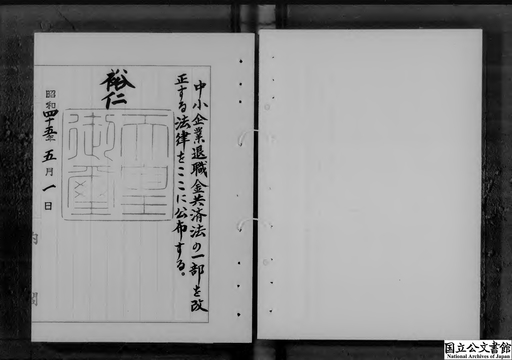 中小企業退職金共済法の一部を改
正する法律をここに公布する。
裕仁
天皇
御璽
昭和四十五年五月一日
内閣
国立公文書館
National Archives of Japan